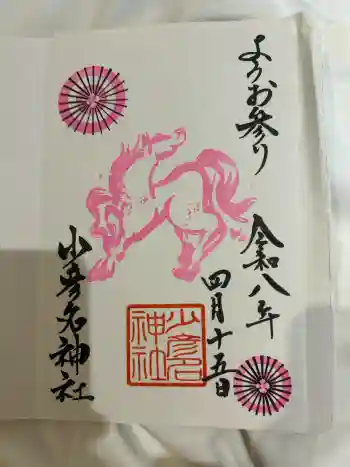 ようお参り
令和八年
四月十五日
少彦名神社
少彦名神社